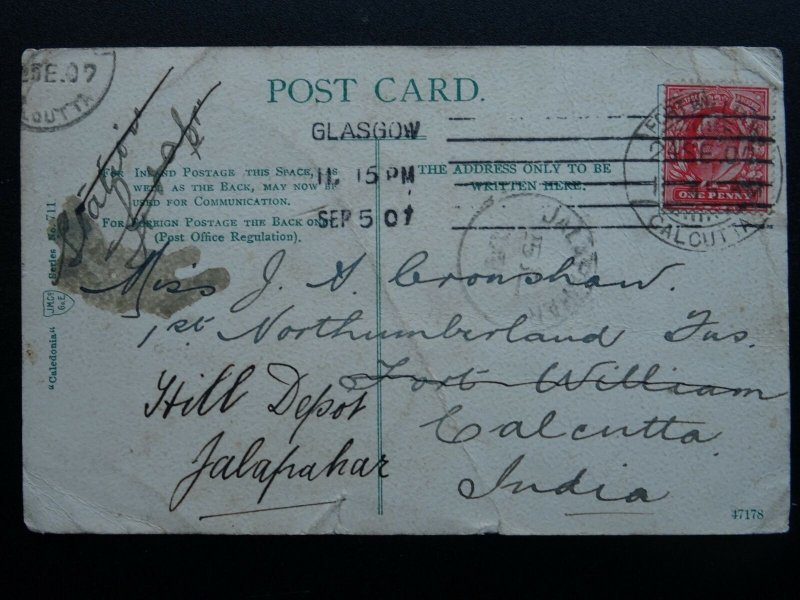 POST CARD.
GLASGOW
11.15 PM
SEP 5 07
FOR INLAND POSTAGE THIS SPACE, AS
WELL AS THE BACK, MAY NOW BE
USED FOR COMMUNICATION.
FOR FOREIGN POSTAGE THE BACK ONLY
(Post Office Regulation).
THE ADDRESS ONLY TO BE
WRITTEN HERE.
ONE PENNY
CALCUTTA
Miss J. A. Cronshaw.
1st Northumberland Fus.
Fort William
Calcutta
India
Hill Depot
Jalapahar
"Caledonia" Series No. 711
J.M.Co
G & E
47178